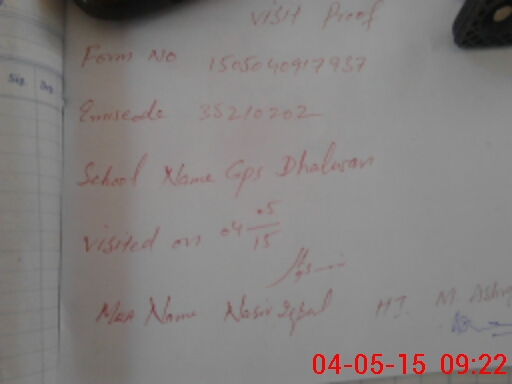 Visit Proof
Form No 1505040917937
Emiscode 35210202
School Name Gps Dhaluwan
visited on 04 05/15
Mea Name Nasir Iqbal HT. M. Ashraf
Sig. Sig.
04-05-15 09:22